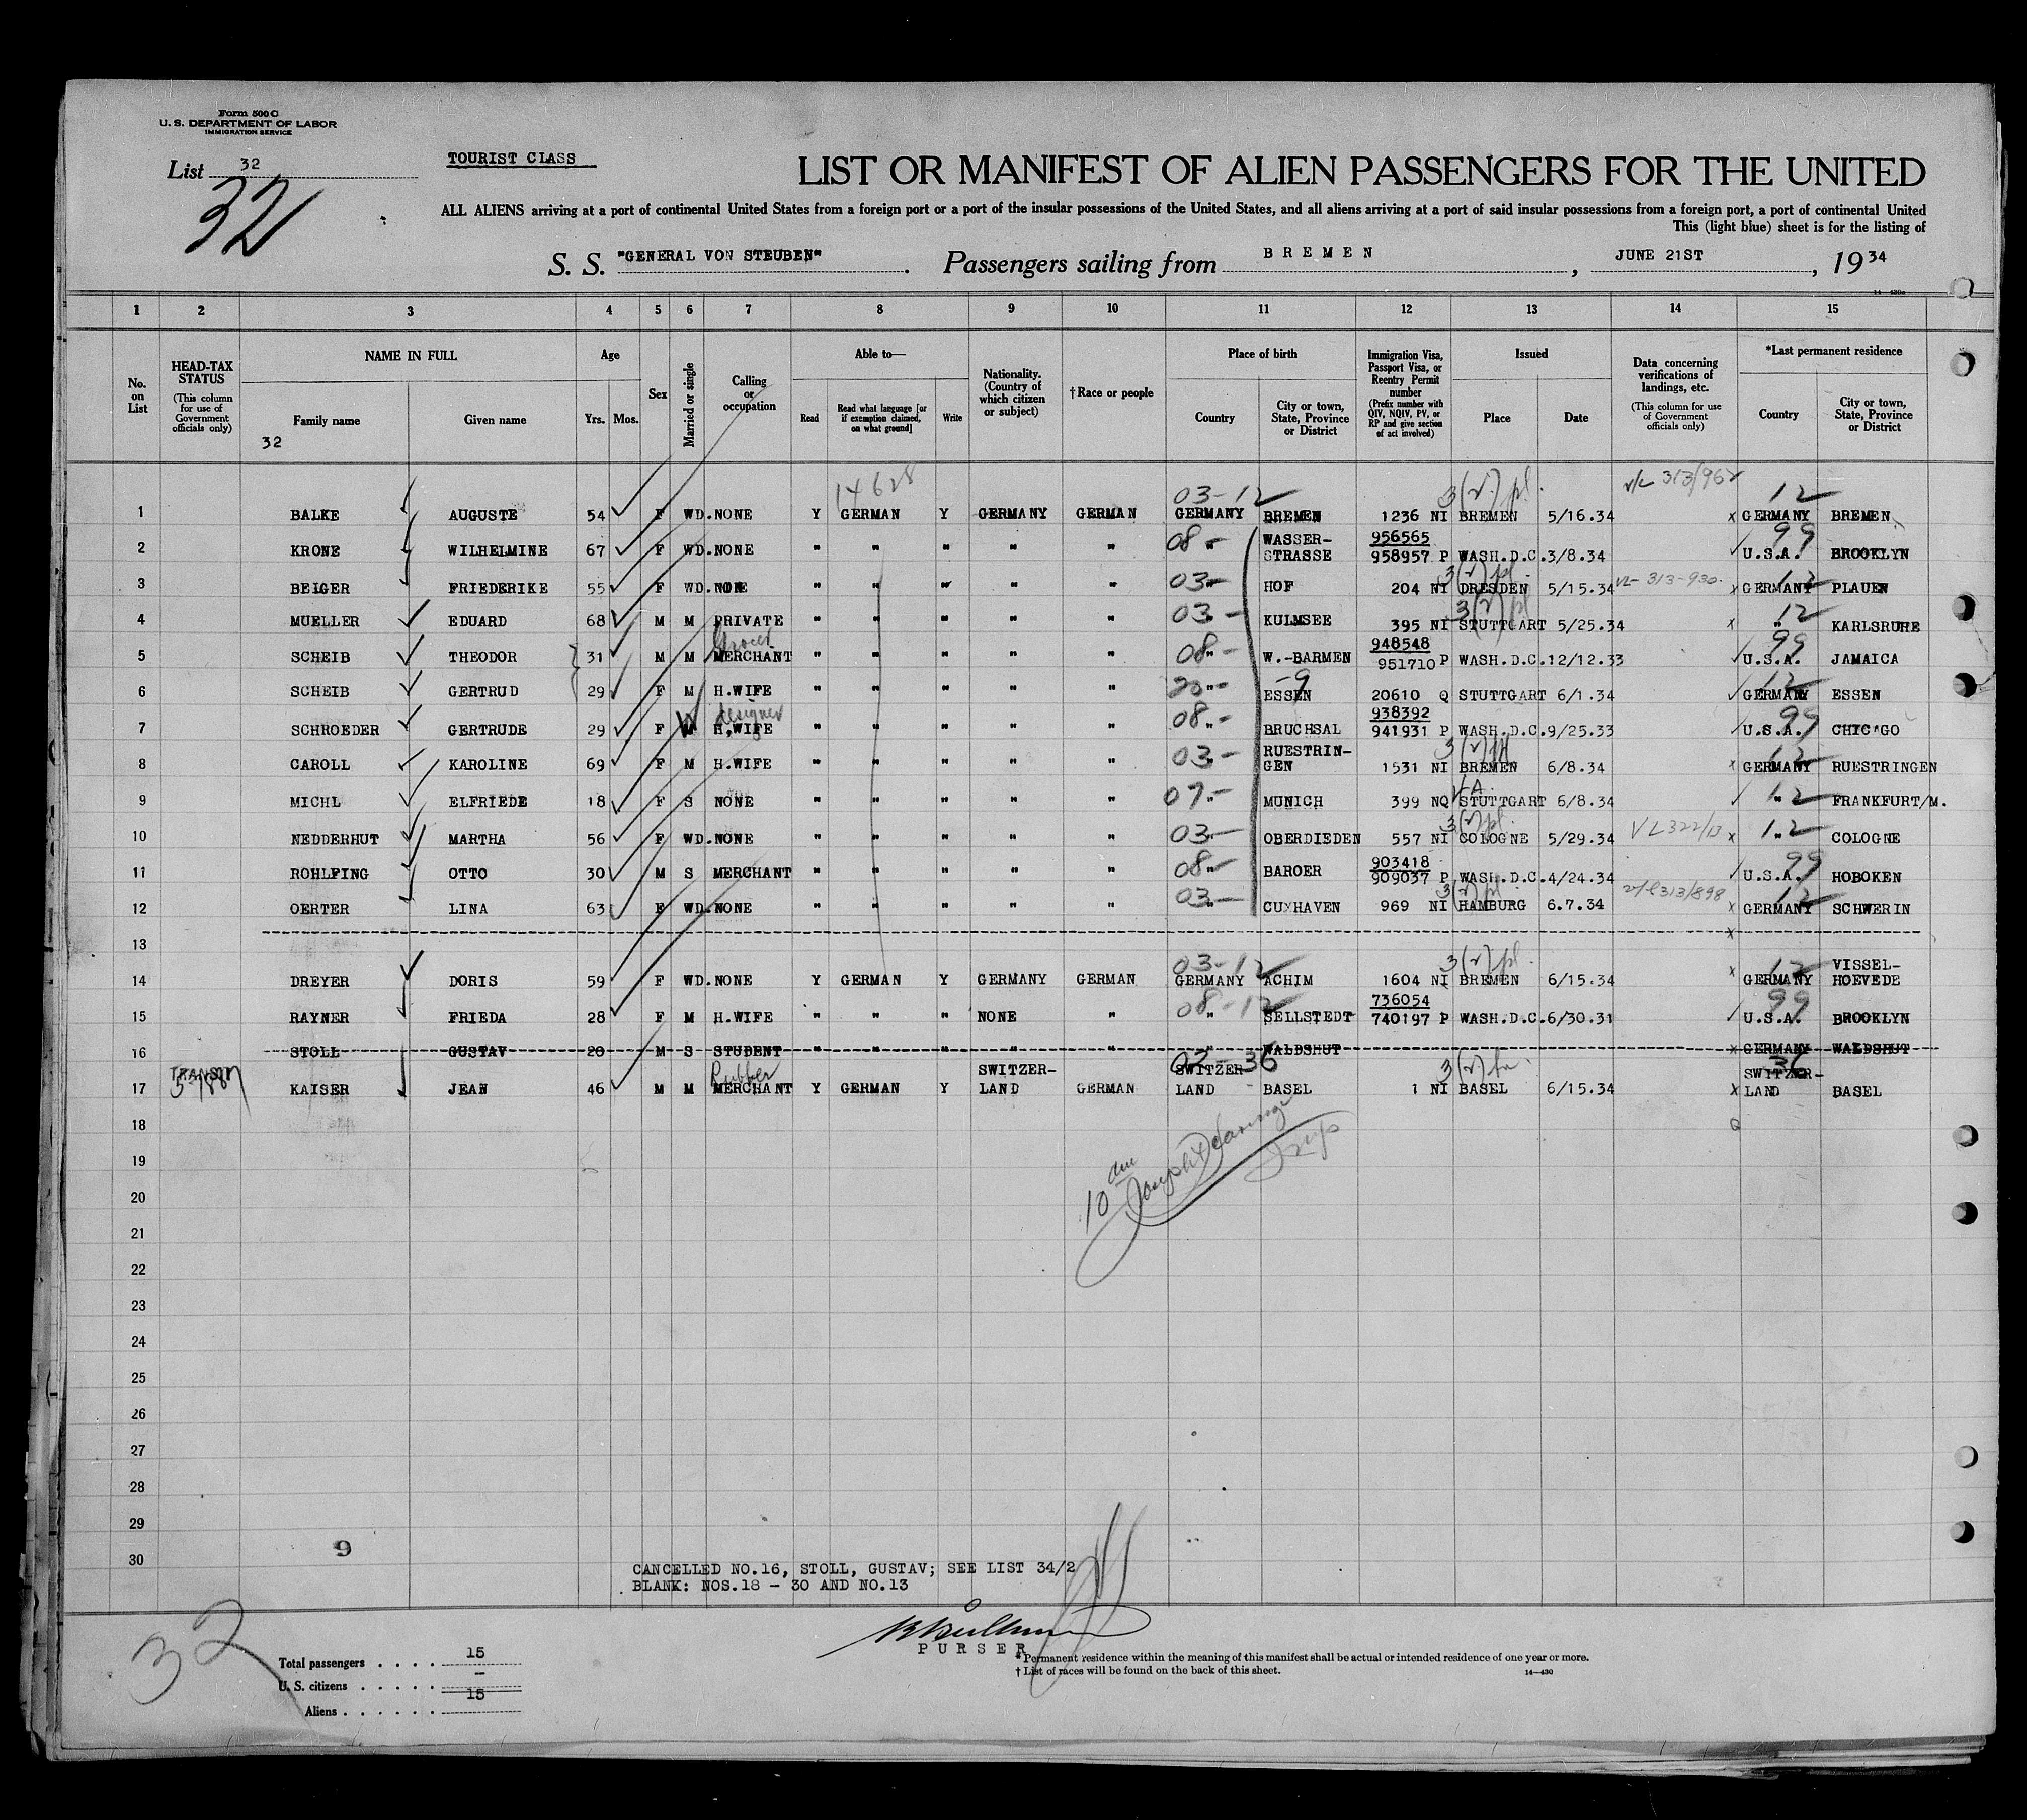 Form 500 C
U. S. DEPARTMENT OF LABOR
IMMIGRATION SERVICE
List 32
32
TOURIST CLASS
LIST OR MANIFEST OF ALIEN PASSENGERS FOR THE UNITED
ALL ALIENS arriving at a port of continental United States from a foreign port or a port of the insular possessions of the United States, and all aliens arriving at a port of said insular possessions from a foreign port, a port of continental United
This (light blue) sheet is for the listing of
S. S. "GENERAL VON STEUBEN". Passengers sailing from BREMEN, JUNE 21ST, 1934
1 2 3 4 5 6 7 8 9 10 11 12 13 14 15
No. on List
HEAD-TAX STATUS (This column for use of Government officials only)
NAME IN FULL
Family name
Given name
32
Age
Yrs. Mos.
Sex
Married or single
Calling or occupation
Able to—
Read
Read what language [or if exemption claimed, on what ground]
Write
Nationality. (Country of which citizen or subject)
†Race or people
Place of birth
Country
City or town, State, Province or District
Immigration Visa, Passport Visa, or Reentry Permit number (Prefix number with QIV, NQIV, PV, or RP and give section of act involved)
Issued
Place
Date
Data concerning verifications of landings, etc. (This column for use of Government officials only)
*Last permanent residence
Country
City or town, State, Province or District
14628 03-12 3(v) pl. v/L 313/962 12
1 BALKE AUGUSTE 54 F WD. NONE Y GERMAN Y GERMANY GERMAN GERMANY BREMEN 1236 NI BREMEN 5/16.34 x GERMANY BREMEN
2 KRONE WILHELMINE 67 F WD. NONE " " " " " 08- " WASSER-STRASSE 956565 958957 P WASH.D.C. 3/8.34 99 U.S.A. BROOKLYN
3 BEIGER FRIEDERIKE 55 F WD. NONE " " " " " 03- " HOF 204 NI 3(v) pl. DRESDEN 5/15.34 VL-313-930. x 12 GERMANY PLAUEN
4 MUELLER EDUARD 68 M M PRIVATE " " " " " 03- " KULMSEE 395 NI 3(v) pl STUTTGART 5/25.34 x 12 " KARLSRUHE
5 SCHEIB THEODOR 31 M M Grocer MERCHANT " " " " " 08- " W.-BARMEN 948548 951710 P WASH.D.C. 12/12.33 99 U.S.A. JAMAICA
6 SCHEIB GERTRUD 29 F M H.WIFE " " " " " " -9 ESSEN 20610 Q STUTTGART 6/1.34 12 GERMANY ESSEN
7 SCHROEDER GERTRUDE 29 F designer H.WIFE " " " " " 08- " BRUCHSAL 938392 941931 P WASH.D.C. 9/25.33 99 U.S.A. CHICAGO
8 CAROLL KAROLINE 69 F M H.WIFE " " " " " 03- " RUESTRIN-GEN 1531 NI 3(v) BREMEN 6/8.34 x 12 GERMANY RUESTRINGEN
9 MICHL ELFRIEDE 18 F S NONE " " " " " 07- " MUNICH 399 NQ STUTTGART 6/8.34 12 " FRANKFURT/M.
10 NEDDERHUT MARTHA 56 F WD. NONE " " " " " 03- " OBERDIEDEN 557 NI 3(v) pl. COLOGNE 5/29.34 VL322/13 x 12 " COLOGNE
11 ROHLFING OTTO 30 M S MERCHANT " " " " " 08- " BAROER 903418 909037 P WASH.D.C. 4/24.34 99 U.S.A. HOBOKEN
12 OERTER LINA 63 F WD. NONE " " " " " 03- " CUXHAVEN 969 NI 3(v) pl HAMBURG 6.7.34 v/l 313/898 x 12 GERMANY SCHWERIN
13 x
14 DREYER DORIS 59 F WD. NONE Y GERMAN Y GERMANY GERMAN 03-12 GERMANY ACHIM 1604 NI 3(v) pl. BREMEN 6/15.34 x 12 GERMANY VISSEL-HOEVEDE
15 RAYNER FRIEDA 28 F M H.WIFE " " " NONE " 08-12 " SELLSTEDT 736054 740197 P WASH.D.C. 6/30.31 99 U.S.A. BROOKLYN
16 STOLL GUSTAV 20 M S STUDENT " " " " " WALDSHUT x GERMANY WALDSHUT
17 TRANSIT KAISER JEAN 46 M M Rubber MERCHANT Y GERMAN Y SWITZER-LAND GERMAN 02-36 SWITZER-LAND BASEL 1 NI 3(v) BASEL 6/15.34 x 36 SWITZER-LAND BASEL
18
19
20
21
22
23
24
25
26
27
28
29
30
10
Joseph
9
CANCELLED NO.16, STOLL, GUSTAV; SEE LIST 34/2
BLANK: NOS.18 - 30 AND NO.13
PURSER
32
Total passengers . . . . 15
U. S. citizens . . . . . —
Aliens . . . . . . 15
*Permanent residence within the meaning of this manifest shall be actual or intended residence of one year or more.
† List of races will be found on the back of this sheet.
14—430